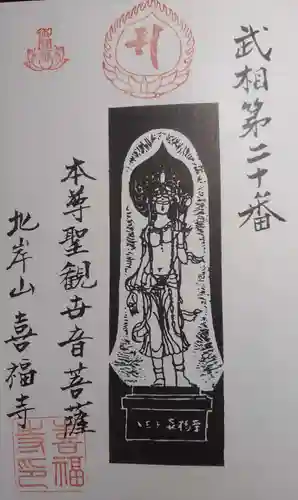 武相第二十番
本尊聖観世音菩薩
地岸山喜福寺
喜福
寺印